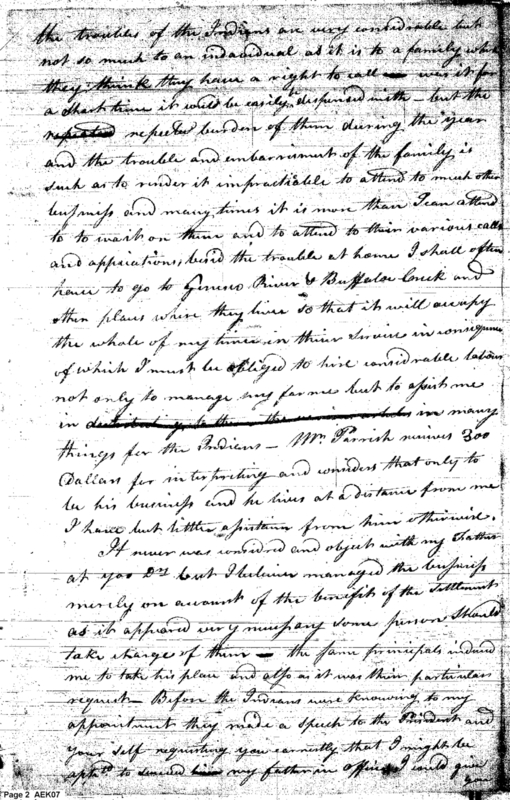 the troubles of the Indians are very considrable but
not so much to an indavidual as it is to a family which
they think they have a right to call — was it for
a short time it would be easily be dispensed with — but the
repeated repeted burden of them during the year
and the trouble and embarrisment of the family is
such as to render it impractiable to attend to much other
business and many times it is more than I can attend
to to wait on them and to attend to their various calls
and appications, besid the trouble at home I shall often
have to go to Geneseo River & Buffaloe Creek and
other places where they live so that it will occupy
the whole of my time in thier Service in consequence
of which I must be obliged to hire considrable labour
not only to manage my farme but to assist me
in in many
things for the Indians — Mr Parrish recives 300
Dollars for interpreting and considers that only to
be his business and he lives at a distance from me
I have but little assistance from him otherwise.
It never was considred and object with my Father
at 400 Drs but I believe managed the business
merely on account of the benifit of the Settlement
as it appeared very necessary some person should
take charge of them — the same principals induced
me to take his place and also as it was thier particular
request — Before the Indians were knowing to my
appointment they made a speech to the President and
your self requesting you earnestly that I might be
aptd to suceed him my father in office I could give
you
Page 2 AEK07